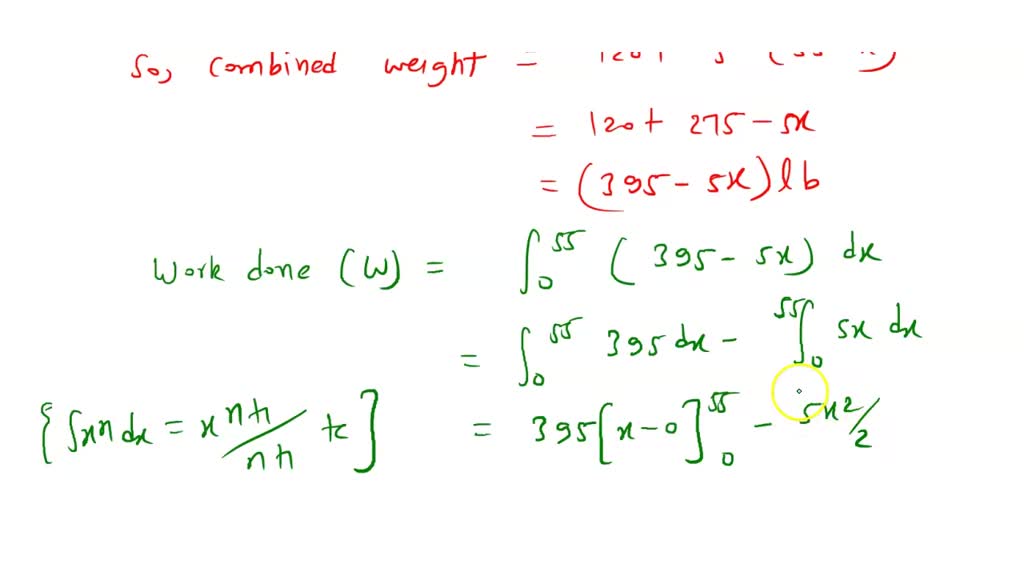 So, combined weight =
= 120 + 275 - 5x
= (395 - 5x) lb
Work done (W) = ∫₀⁵⁵ (395 - 5x) dx
= ∫₀⁵⁵ 395 dx - ∫₀⁵⁵ 5x dx
{∫xⁿ dx = xⁿ⁺¹/n+1 + c] = 395[x - 0]₀⁵⁵ - 5x²/2